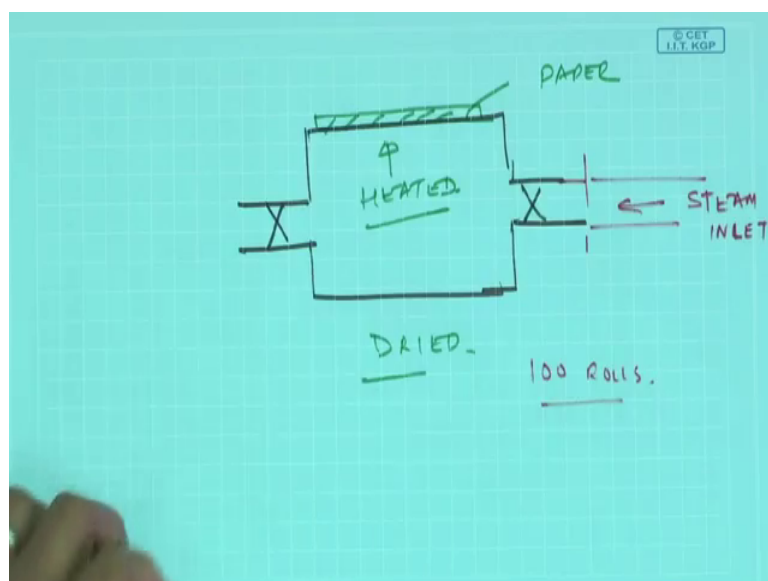 © CET
I.I.T. KGP
PAPER
HEATED.
STEAM
INLET
DRIED.
100 ROLLS.